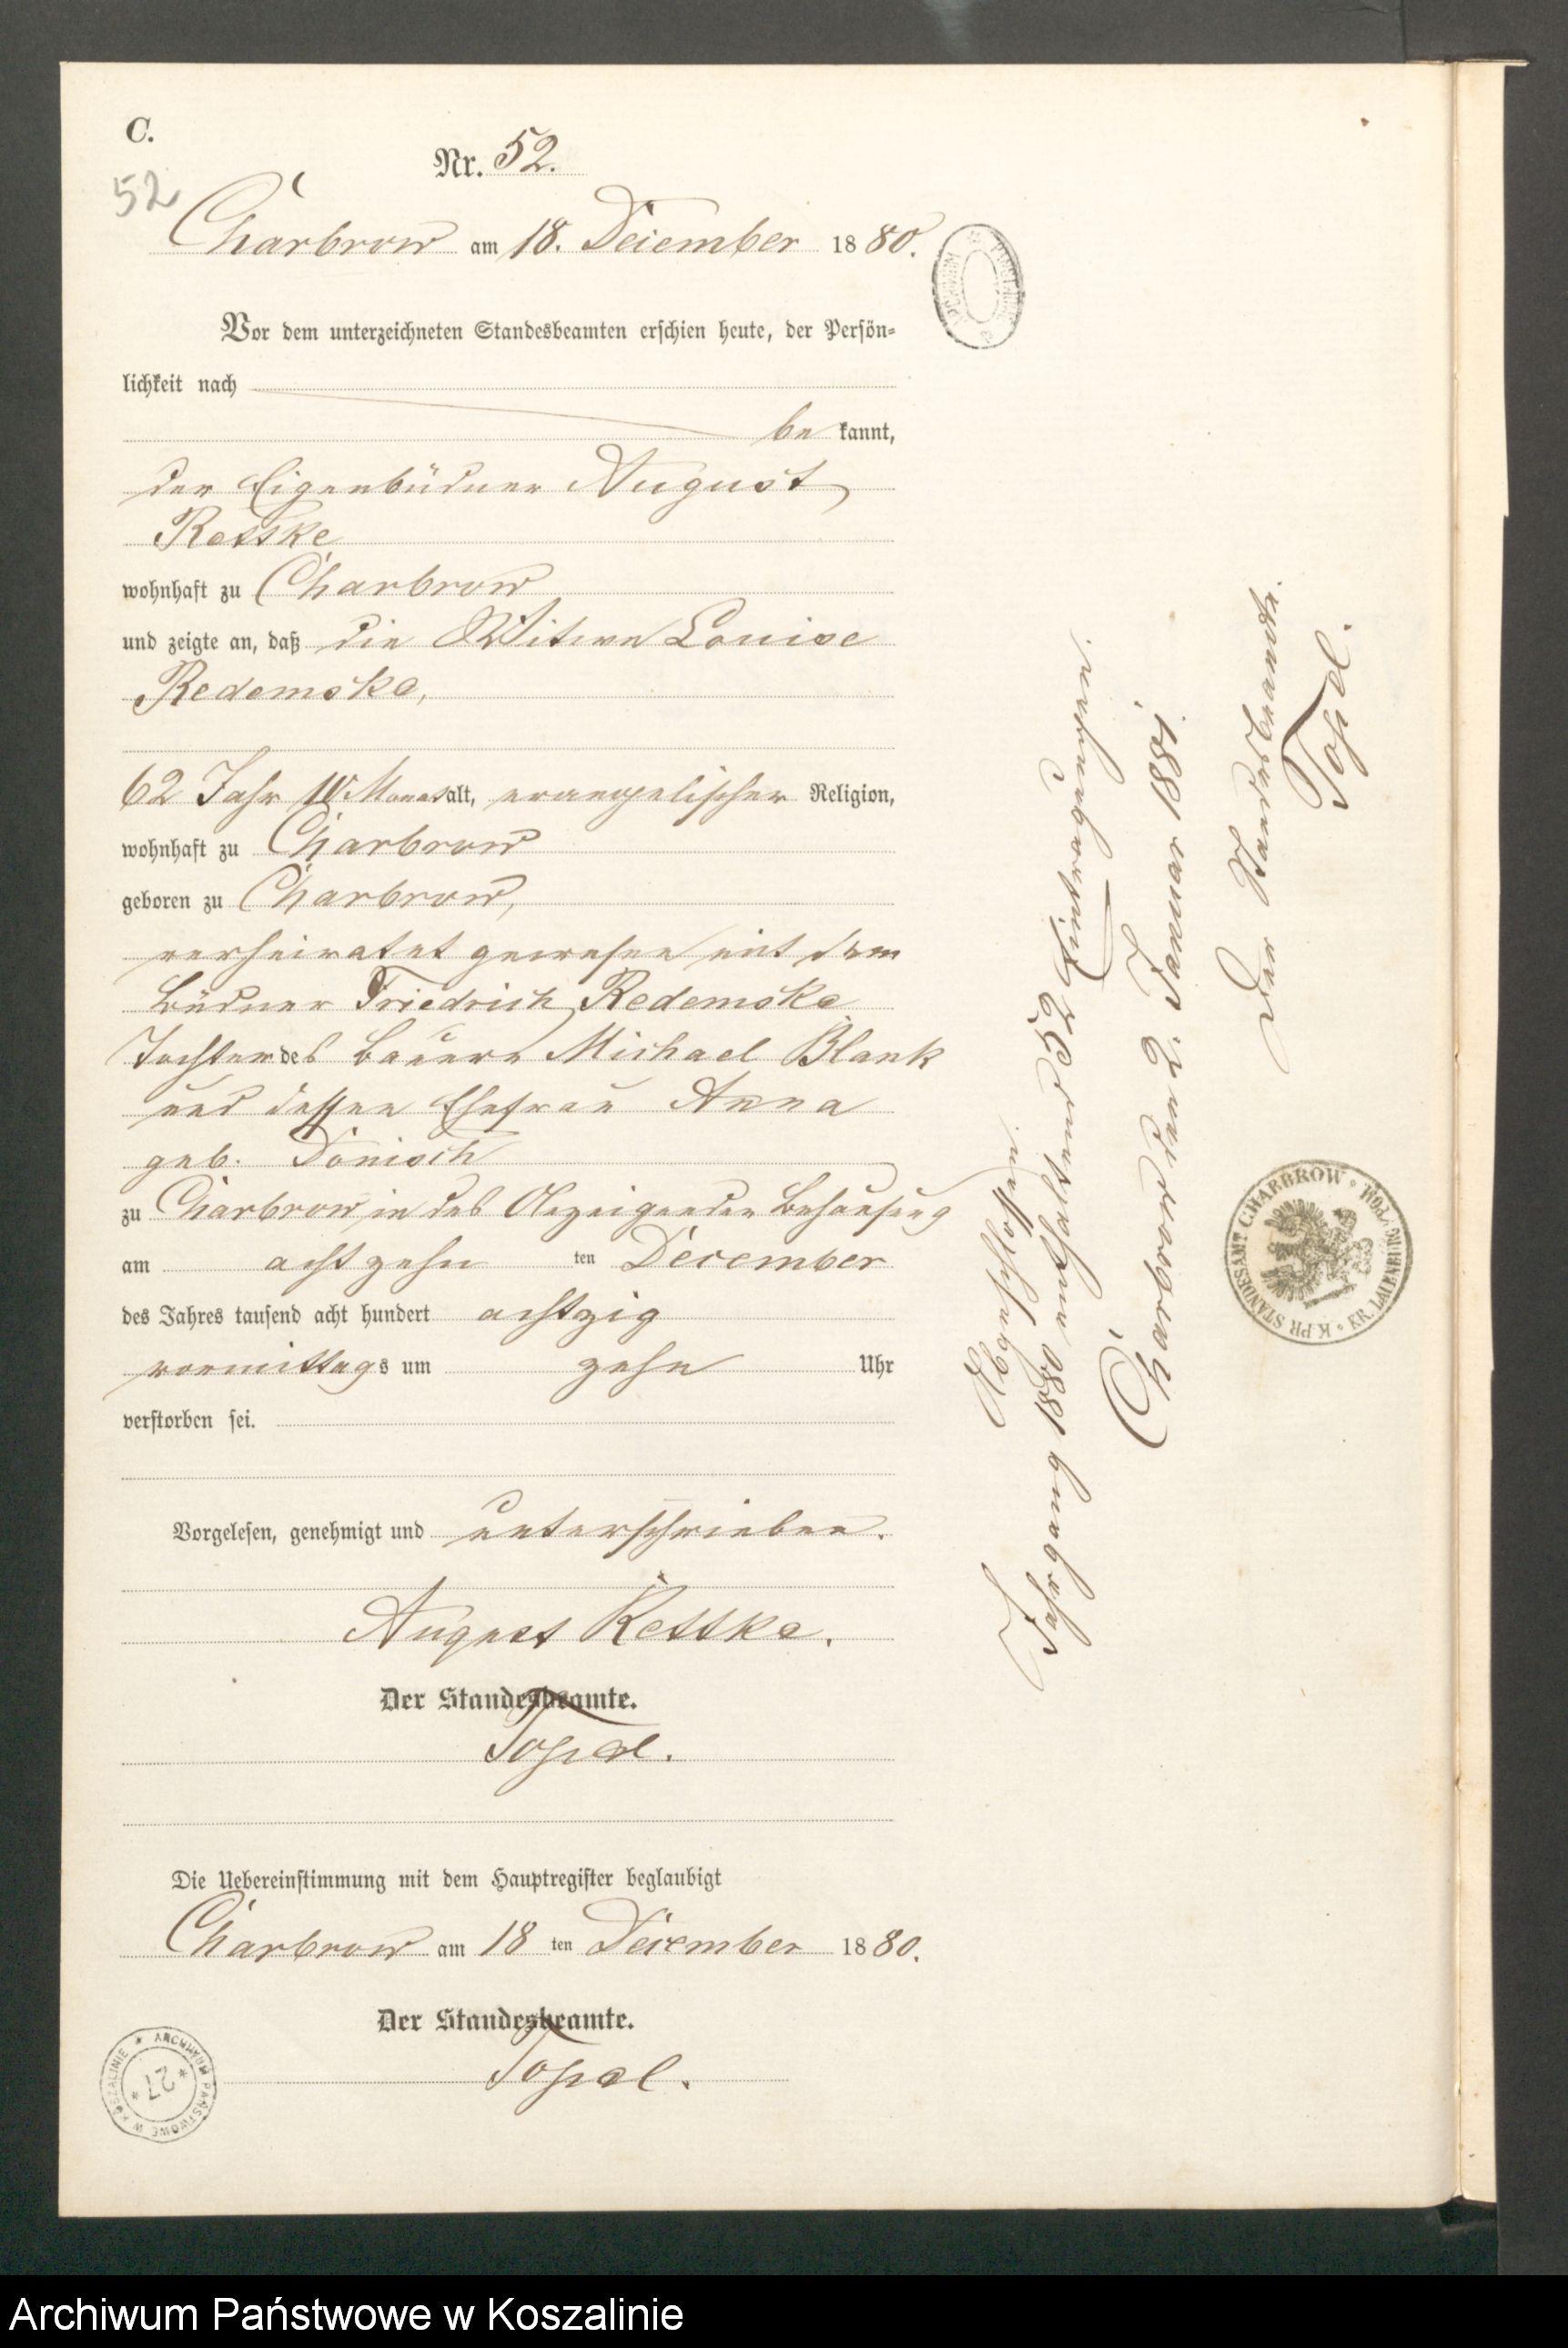 C.
52
Nr. 52.
Charbrow am 18. December 1880.
Vor dem unterzeichneten Standesbeamten erschien heute, der Persön-
lichkeit nach
be kannt,
der Eigenbüdner August
Retske
wohnhaft zu Charbrow
und zeigte an, daß die Witwe Louise
Redemske,
62 Jahr 10 Monat alt, evangelischer Religion,
wohnhaft zu Charbrow
geboren zu Charbrow,
verheiratet gewesen mit dem
Büdner Friedrich Redemske
Tochter des Bauern Michael Blank
und dessen Ehefrau Anna
geb. Donisch
zu Charbrow in des Anzeigenden Behausung
am achtzehn ten December
des Jahres tausend acht hundert achtzig
vormittags um zehn Uhr
verstorben sei.
Vorgelesen, genehmigt und unterschrieben.
August Retske.
Der Standesbeamte.
Topel.
Die Uebereinstimmung mit dem Hauptregister beglaubigt
Charbrow am 18 ten December 1880.
Der Standesbeamte.
Topel.
Abgeschlossen.
Jahrgang 1880 enthaltend 52 Eintragungen.
Charbrow den 2. Januar 1881.
Der Standesbeamte.
Topel.
K. PR. STANDESAMT CHARBROW * KR. LAUENBURG POM.
ARCHIWUM PAŃSTWOWE W KOSZALINIE
27
Archiwum Państwowe w Koszalinie